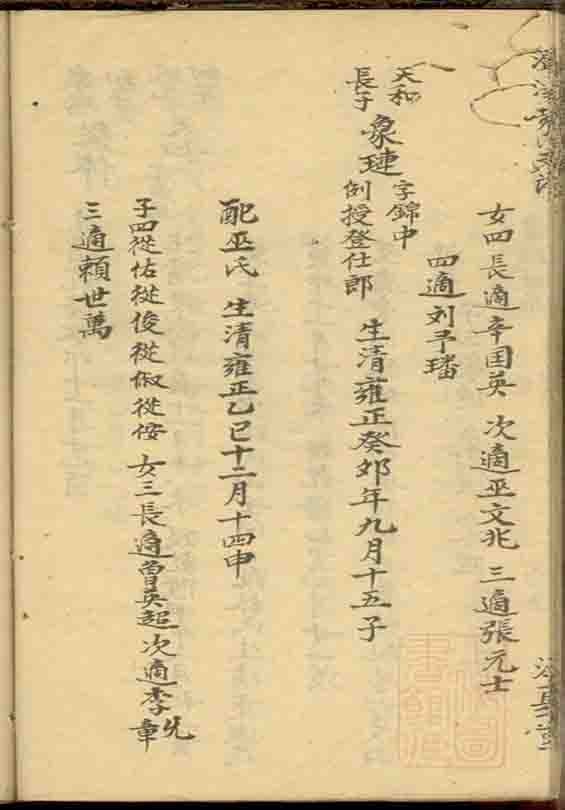 女四長適辛国英 次適巫文兆 三適張元士
四適刘予璠
天和
長子
象璉 字錦中
例授登仕郎
生清雍正癸卯年九月十五子
配巫氏 生清雍正乙巳十二月十四申
子四從佑從俊從俶從侒 女三長適曾英超次適李先章
三適賴世萬